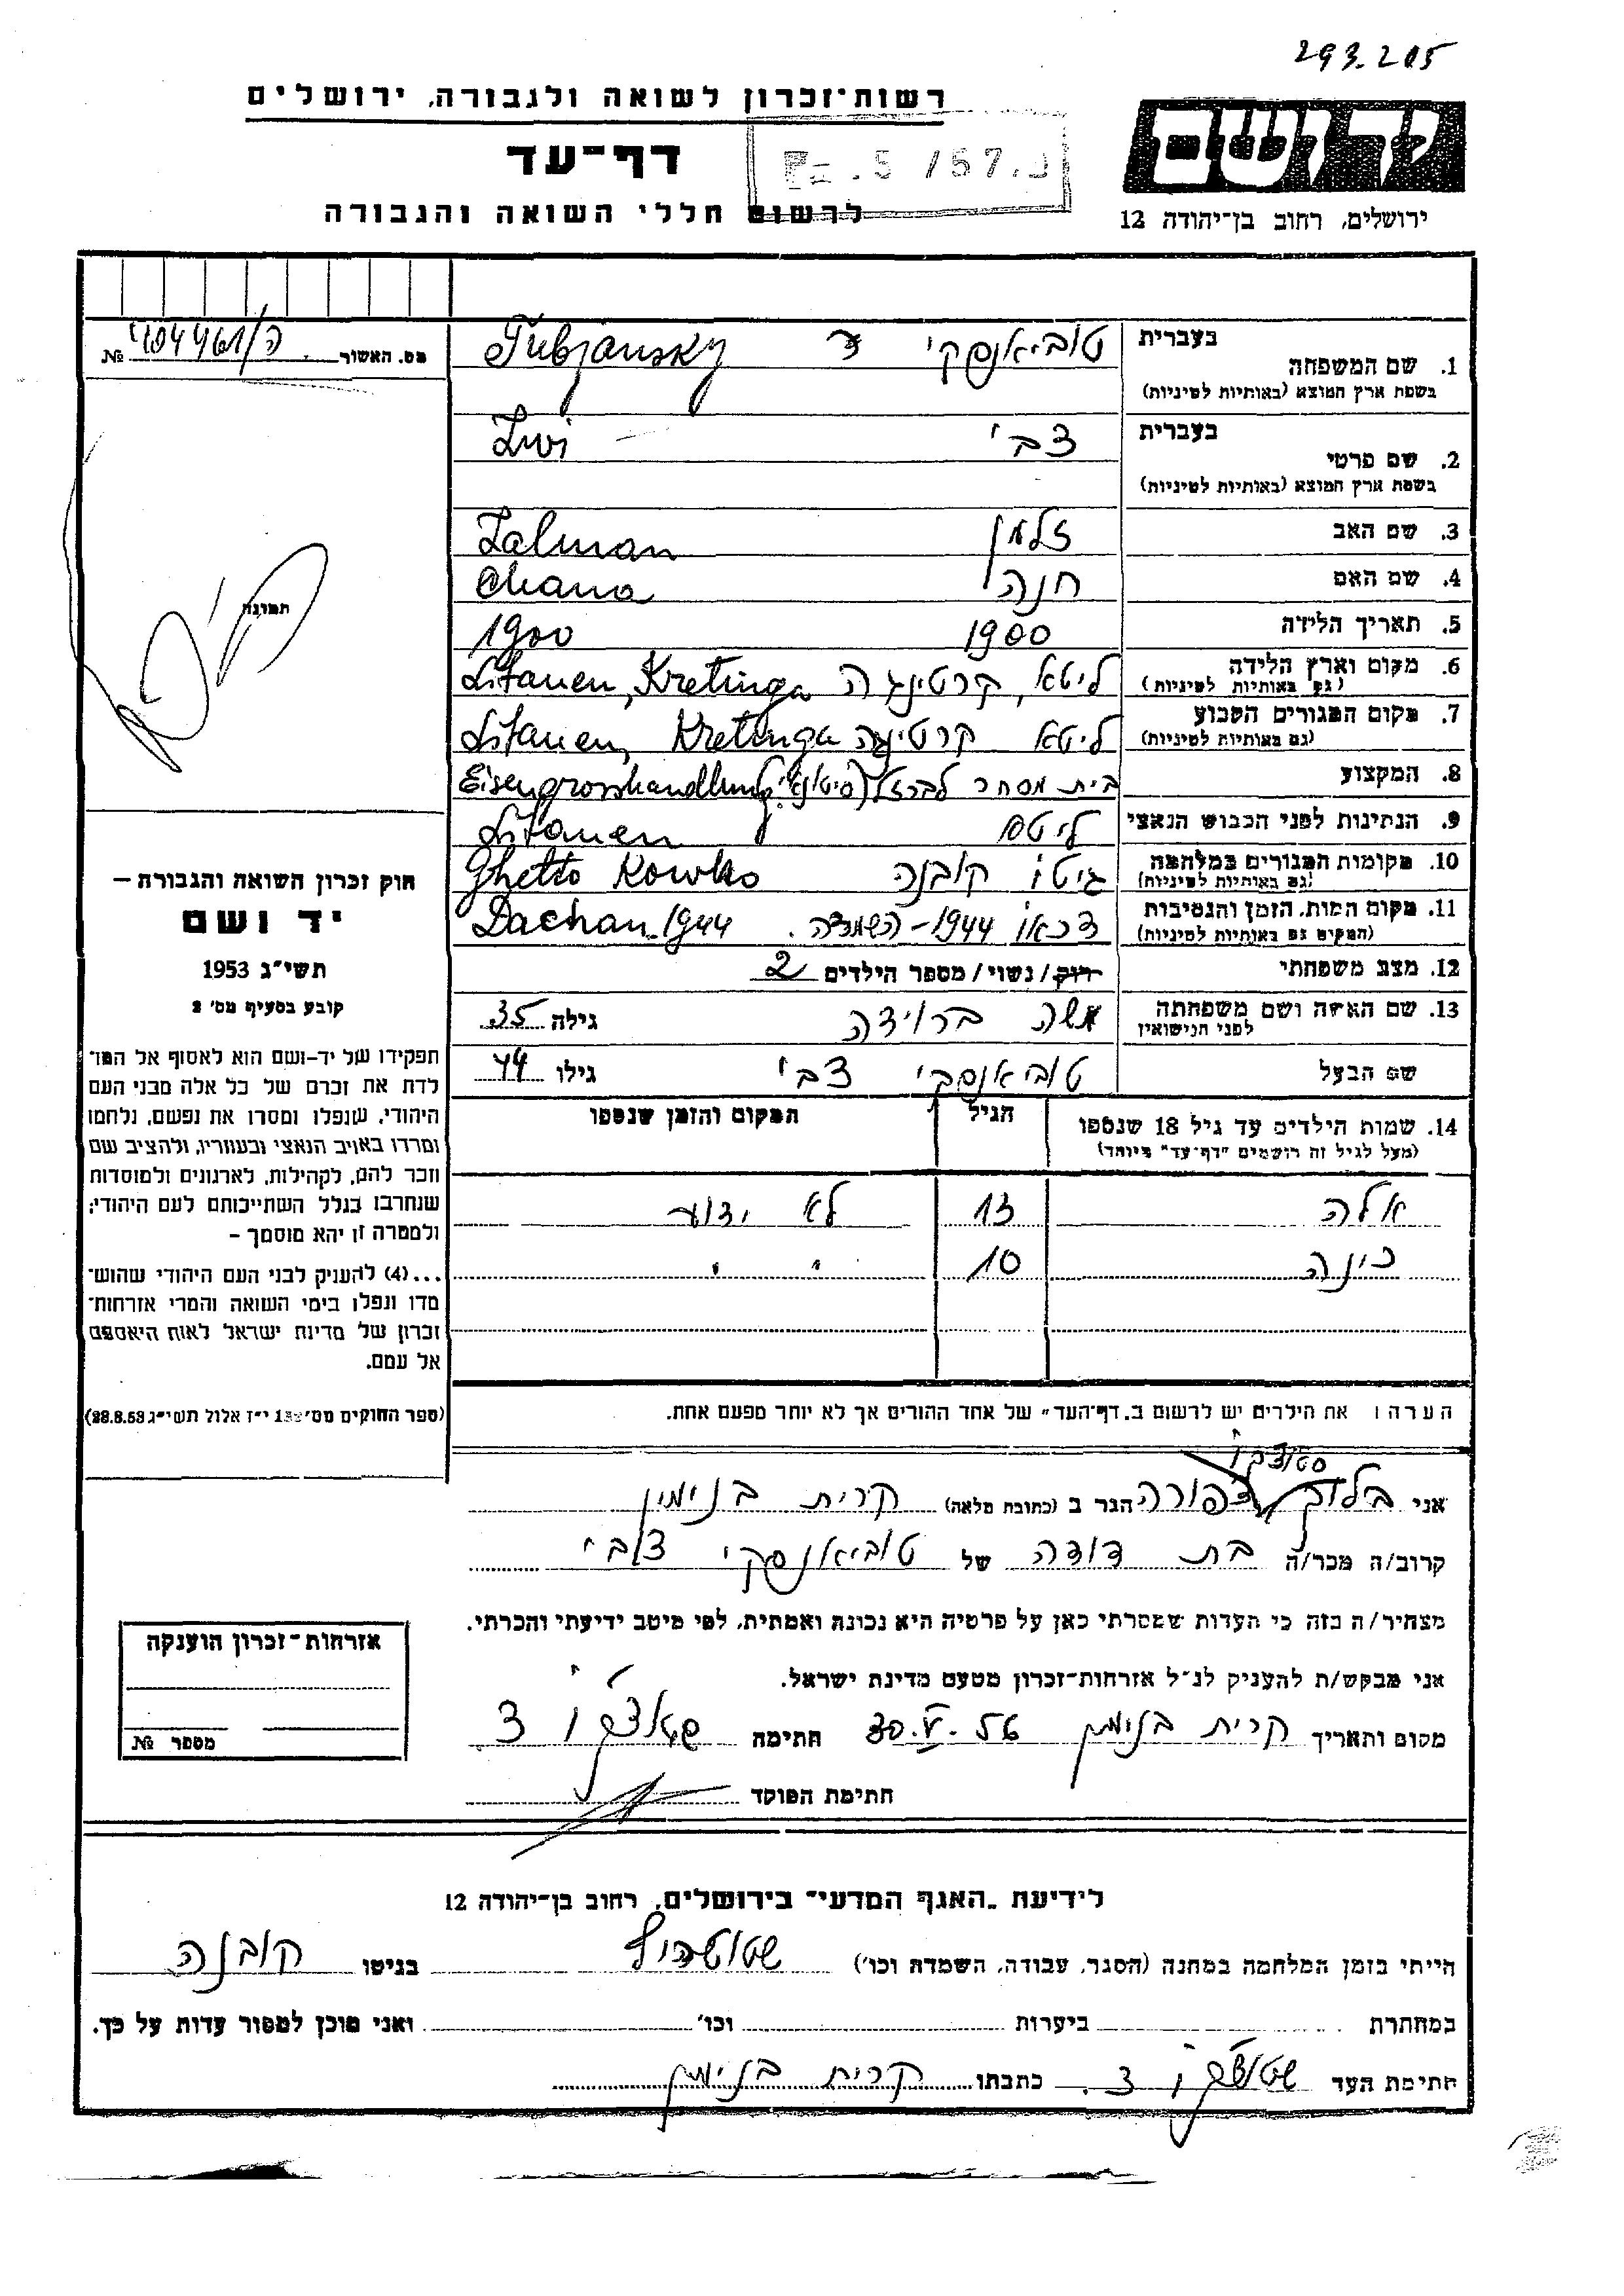 293.205
רשות־זכרון לשואה ולגבורה, ירושלים
ידושם
דף־עד
לרשום חללי השואה והגבורה
ירושלים, רחוב בן־יהודה 12
מס. האשור №
1. שם המשפחה בעברית טוביאנסקי Tubjansky
בשפת ארץ המוצא (באותיות לטיניות)
2. שם פרטי בעברית צבי Zwi
בשפת ארץ המוצא (באותיות לטיניות)
3. שם האב זלמן Zalman
4. שם האם חנה Chana
5. תאריך הלידה 1900 1900
6. מקום וארץ הלידה ליטא, קרטינגה Litauen, Kretinga
(גם באותיות לטיניות)
7. מקום המגורים הקבוע ליטא קרטינגה Litauen, Kretinga
(גם באותיות לטיניות)
8. המקצוע בית מסחר לברזל (סיטונאי) Eisengrosshandlung
9. הנתינות לפני הכבוש הנאצי ליטא Litauen
10. מקומות המגורים במלחמה גיטו קובנה Ghetto Kowno
(גם באותיות לטיניות)
11. מקום המות, הזמן והנסיבות דכאו 1944 - השמדה. Dachau 1944
(המקום גם באותיות לטיניות)
12. מצב משפחתי רווק/נשוי/מספר הילדים 2
13. שם האשה ושם משפחתה אשה ברוידה גילה 35
לפני הנישואין
שם הבעל טוביאנסקי צבי גילו 44
14. שמות הילדים עד גיל 18 שנספו הגיל המקום והזמן שנספו
(מעל לגיל זה רושמים "דף־עד" מיוחד)
אלה 13 לא ידוע
10 " "
הערה: את הילדים יש לרשום ב,,דף־העד" של אחד ההורים אך לא יותר מפעם אחת.
תמונה
חוק זכרון השואה והגבורה –
יד ושם
תשי"ג 1953
קובע בסעיף מס' 2
תפקידו של יד-ושם הוא לאסוף אל המו־
לדת את זכרם של כל אלה מבני העם
היהודי, שנפלו ומסרו את נפשם, נלחמו
ומרדו באויב הנאצי ובעוזריו, ולהציב שם
וזכר להם, לקהילות, לארגונים ולמוסדות
שנחרבו בגלל השתייכותם לעם היהודי;
ולמטרה זו יהא מוסמך –
...(4) להעניק לבני העם היהודי שהוש־
מדו ונפלו בימי השואה והמרי אזרחות־
זכרון של מדינת ישראל לאות היאספם
אל עמם.
(ספר החוקים מס' 132 י"ז אלול תשי"ג 28.8.53)
אני צפורה הגר ב (כתובת מלאה) קרית בנימין
קרוב/ה מכר/ה בת דודה של טוביאנסקי צבי
מצהיר/ה בזה כי העדות שמסרתי כאן על פרטיה היא נכונה ואמתית, לפי מיטב ידיעתי והכרתי.
אני מבקש/ת להעניק לנ"ל אזרחות־זכרון מטעם מדינת ישראל.
מקום ותאריך קרית בנימין 30.V.56 חתימה
חתימת הפוקד
אזרחות־זכרון הוענקה
מספר №
לידיעת ,,האגף המדעי" בירושלים, רחוב בן־יהודה 12
הייתי בזמן המלחמה במחנה (הסגר, עבודה, השמדה וכו') שטוטהוף בגיטו קובנה
במחתרת ביערות וכו' ואני מוכן למסור עדות על כך.
חתימת העד כתבתו קרית בנימין